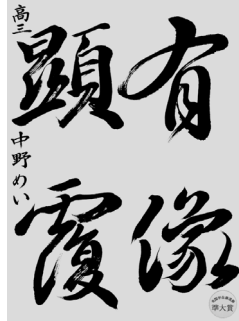 有像
顕覆
高三 中野めい
準大賞